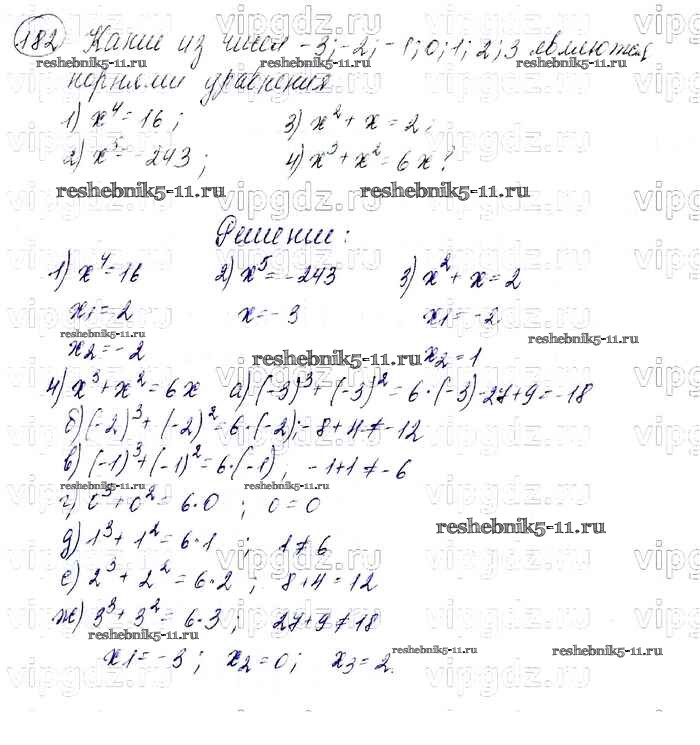 182 Какие из чисел -3; -2; -1; 0; 1; 2; 3 являются
корнями уравнения
1) x⁴ = 16; 3) x² + x = 2;
2) x⁵ = -243; 4) x³ + x² = 6x?
Решение:
1) x⁴ = 16 2) x⁵ = -243 3) x² + x = 2
x₁ = 2 x = -3 x₁ = -2
x₂ = -2 x₂ = 1
4) x³ + x² = 6x а) (-3)³ + (-3)² = 6·(-3) -27+9 = -18
б) (-2)³ + (-2)² = 6·(-2); -8+4 ≠ -12
в) (-1)³ + (-1)² = 6·(-1), -1+1 ≠ -6
г) 0³ + 0² = 6·0 ; 0 = 0
д) 1³ + 1² = 6·1 ; 1 ≠ 6
е) 2³ + 2² = 6·2 ; 8+4 = 12
ж) 3³ + 3² = 6·3 ; 27+9 ≠ 18
x₁ = -3 ; x₂ = 0; x₃ = 2.
vipgdz.ru
reshebnik5-11.ru